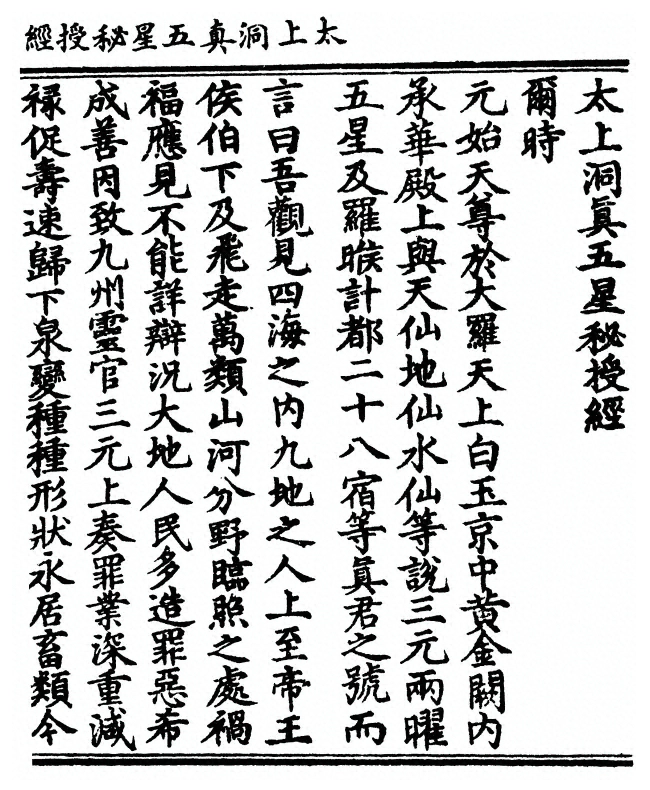 太上洞真五星秘授經
太上洞眞五星秘授經
爾時
元始天尊於大羅天上白玉京中黃金闕内
承華殿上與天仙地仙水仙等說三元兩曜
五星及羅睺計都二十八宿等眞君之號而
言曰吾觀見四海之内九地之人上至帝王
侯伯下及飛走萬類山河分野臨照之處禍
福應見不能詳辯况大地人民多造罪惡希
成善因致九州靈官三元上奏罪業深重減
祿促壽速歸下泉變種種形狀永居畜類今